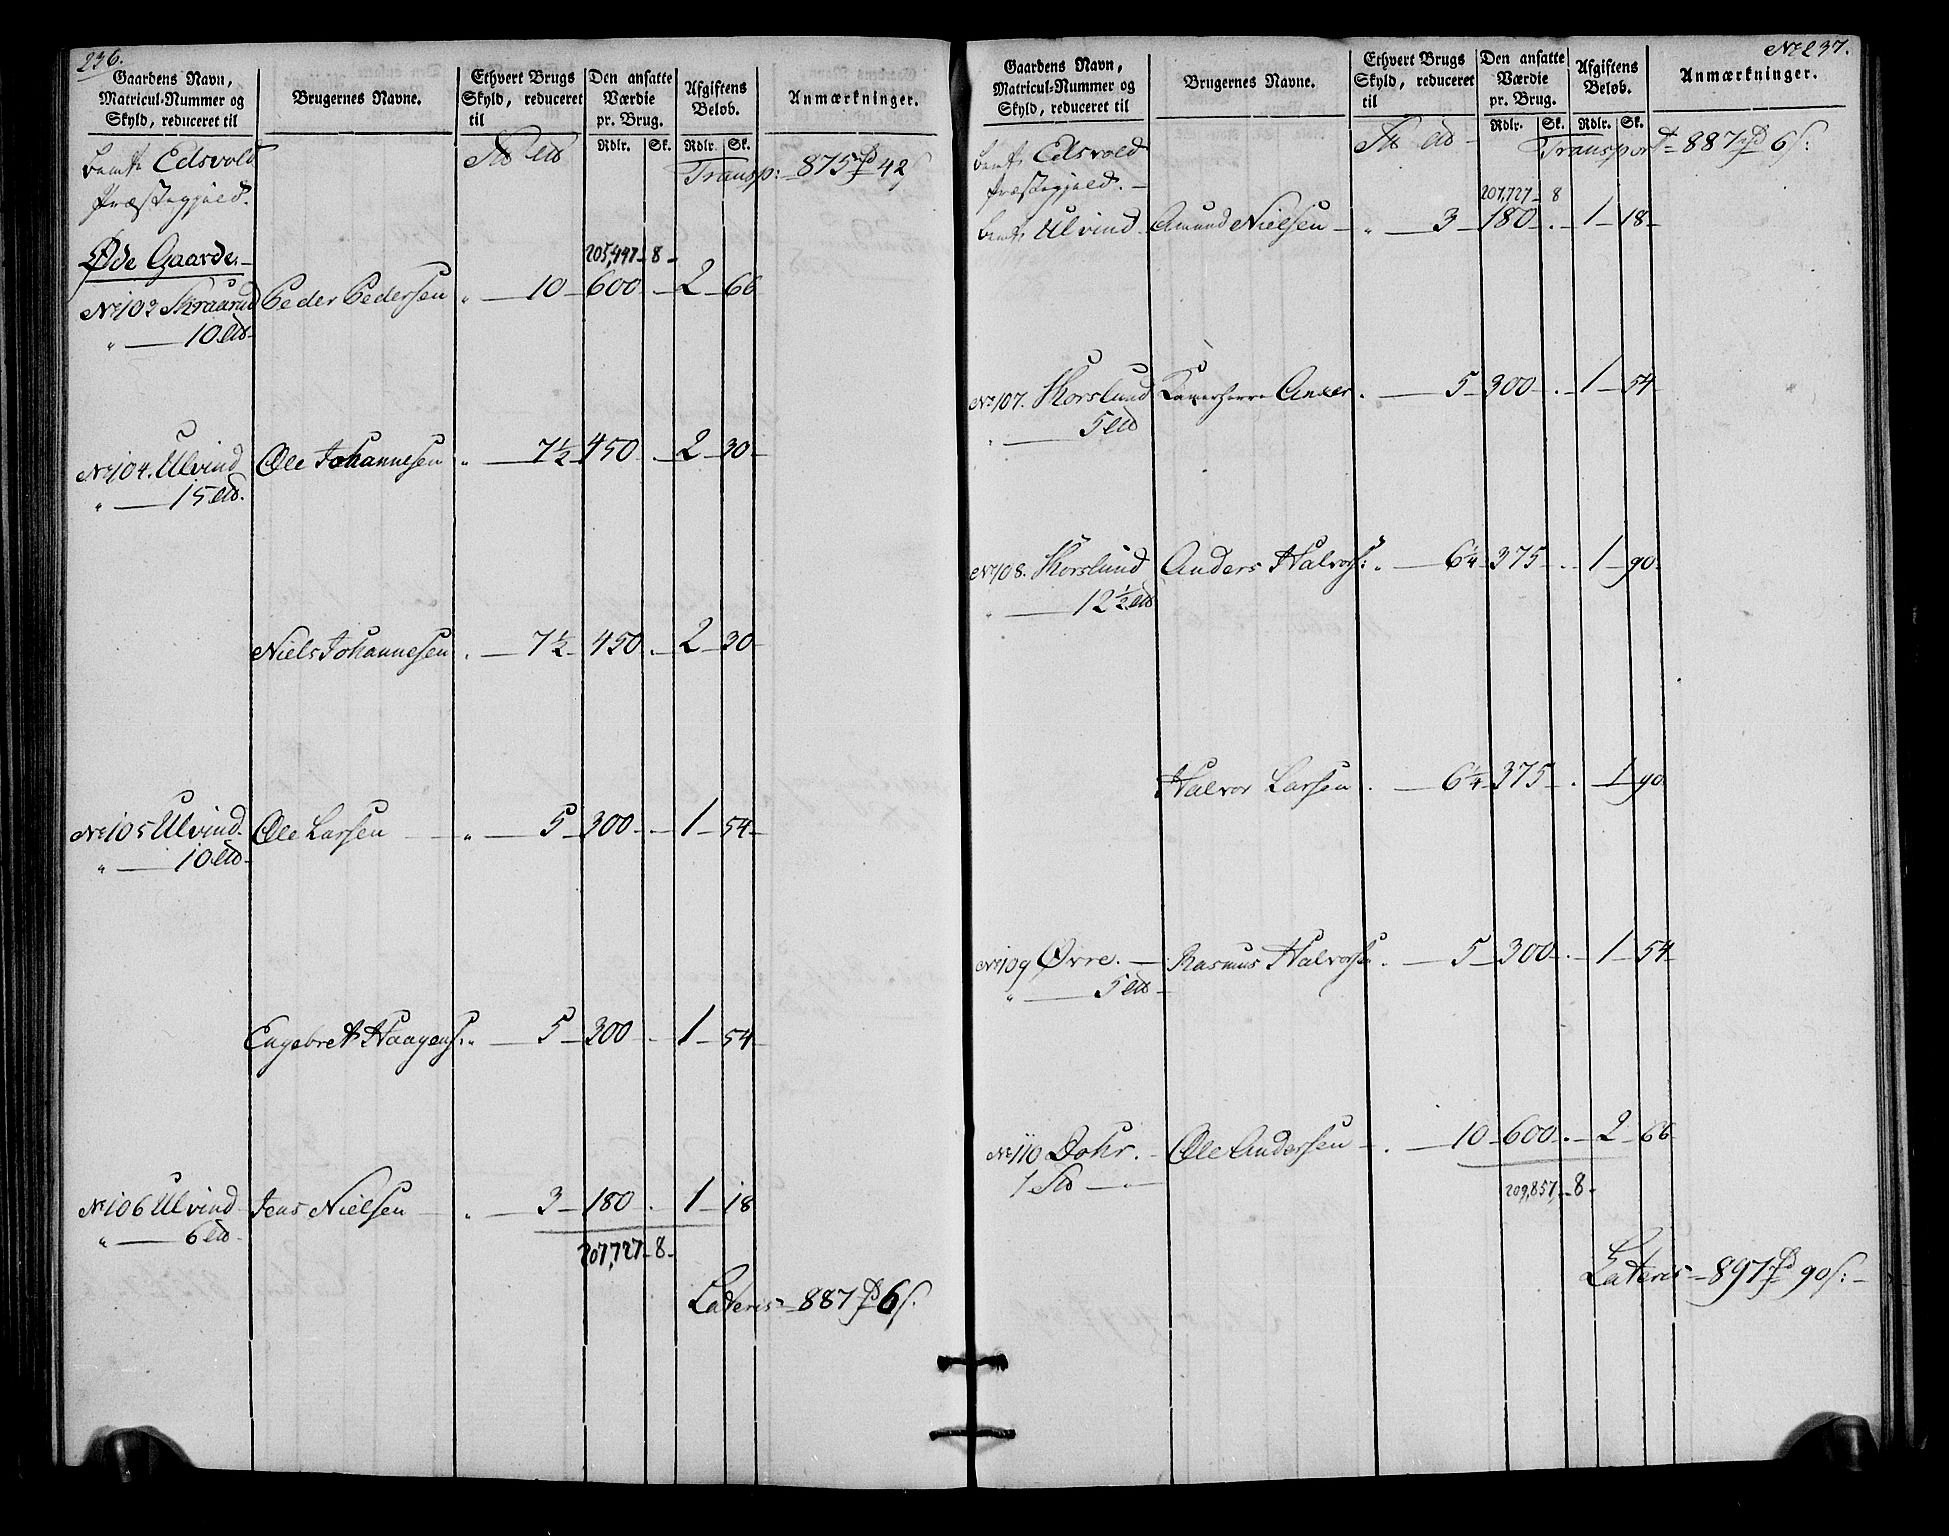 236.
Gaardens Navn,
Matricul-Nummer og
Skyld, reduceret til
Brugernes Navne.
Ethvert Brugs
Skyld, reduceret
til
Den ansatte
Værdie
pr. Brug.
Afgiftens
Beløb.
Anmærkninger.
Rdlr. Sk. Rdlr. Sk.
Edsvold
Præstegjeld.
Transp: 875 42
Øde Gaarde.
205,447 8
No 103 Skraarud Peder Pedersen " 10 600 2 66
" 10
No 104. Ulvind Ole Johannesen " 7½ 450 2 30
" 15
Niels Johannesen 7½ 450 2 30
No 105 Ulvind Ole Larsen " 5 300 1 54
" 10
Engebret Haagens: " 5 300 1 54
No 106 Ulvind Jens Nielsen " 3 180 1 18
" 6
207,727 8
Lateris 887 6
No 237.
Gaardens Navn,
Matricul-Nummer og
Skyld, reduceret til
Brugernes Navne.
Ethvert Brugs
Skyld, reduceret
til
Den ansatte
Værdie
pr. Brug.
Afgiftens
Beløb.
Anmærkninger.
Rdlr. Sk. Rdlr. Sk.
Edsvold
Præstegjeld.
Transport 887 6
207,727 8
Ulvind Amund Nielsen " 3 180 1 18
No 107. Korslund Kamerherre Anker 5 300 1 54
" 5
No 108. Korslund Anders Halvors: 6¼ 375 1 90
" 12½
Halvor Larsen 6¼ 375 1 90
No 109 Øvre. Rasmus Halvorsen 5 300 1 54
" 5
No 110 Dohr. Ole Andersen 10 600 2 66
1
209,857 8
Lateris 897 90